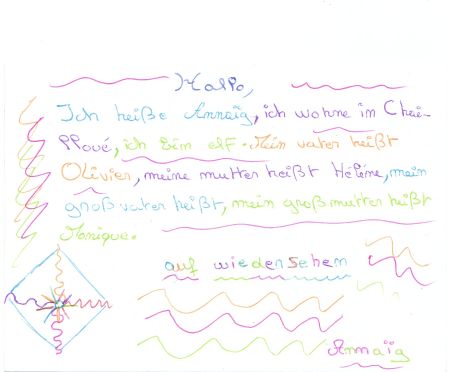 Hallo,
Ich heiße Annaïg, ich wohne im Chei-
lloué, ich bin elf. Mein vater heißt
Olivier, meine mutter heißt Hélène, mein
großvater heißt, mein großmutter heißt
Monique.
auf wiedersehem
Annaïg